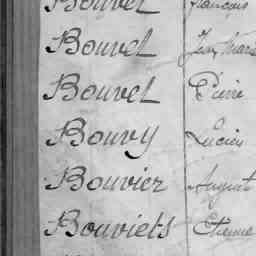 Bouvet François
Bouvet Jean Marie
Bouvet Pierre
Bouvy Lucien
Bouvier August
Bouviets Etienne